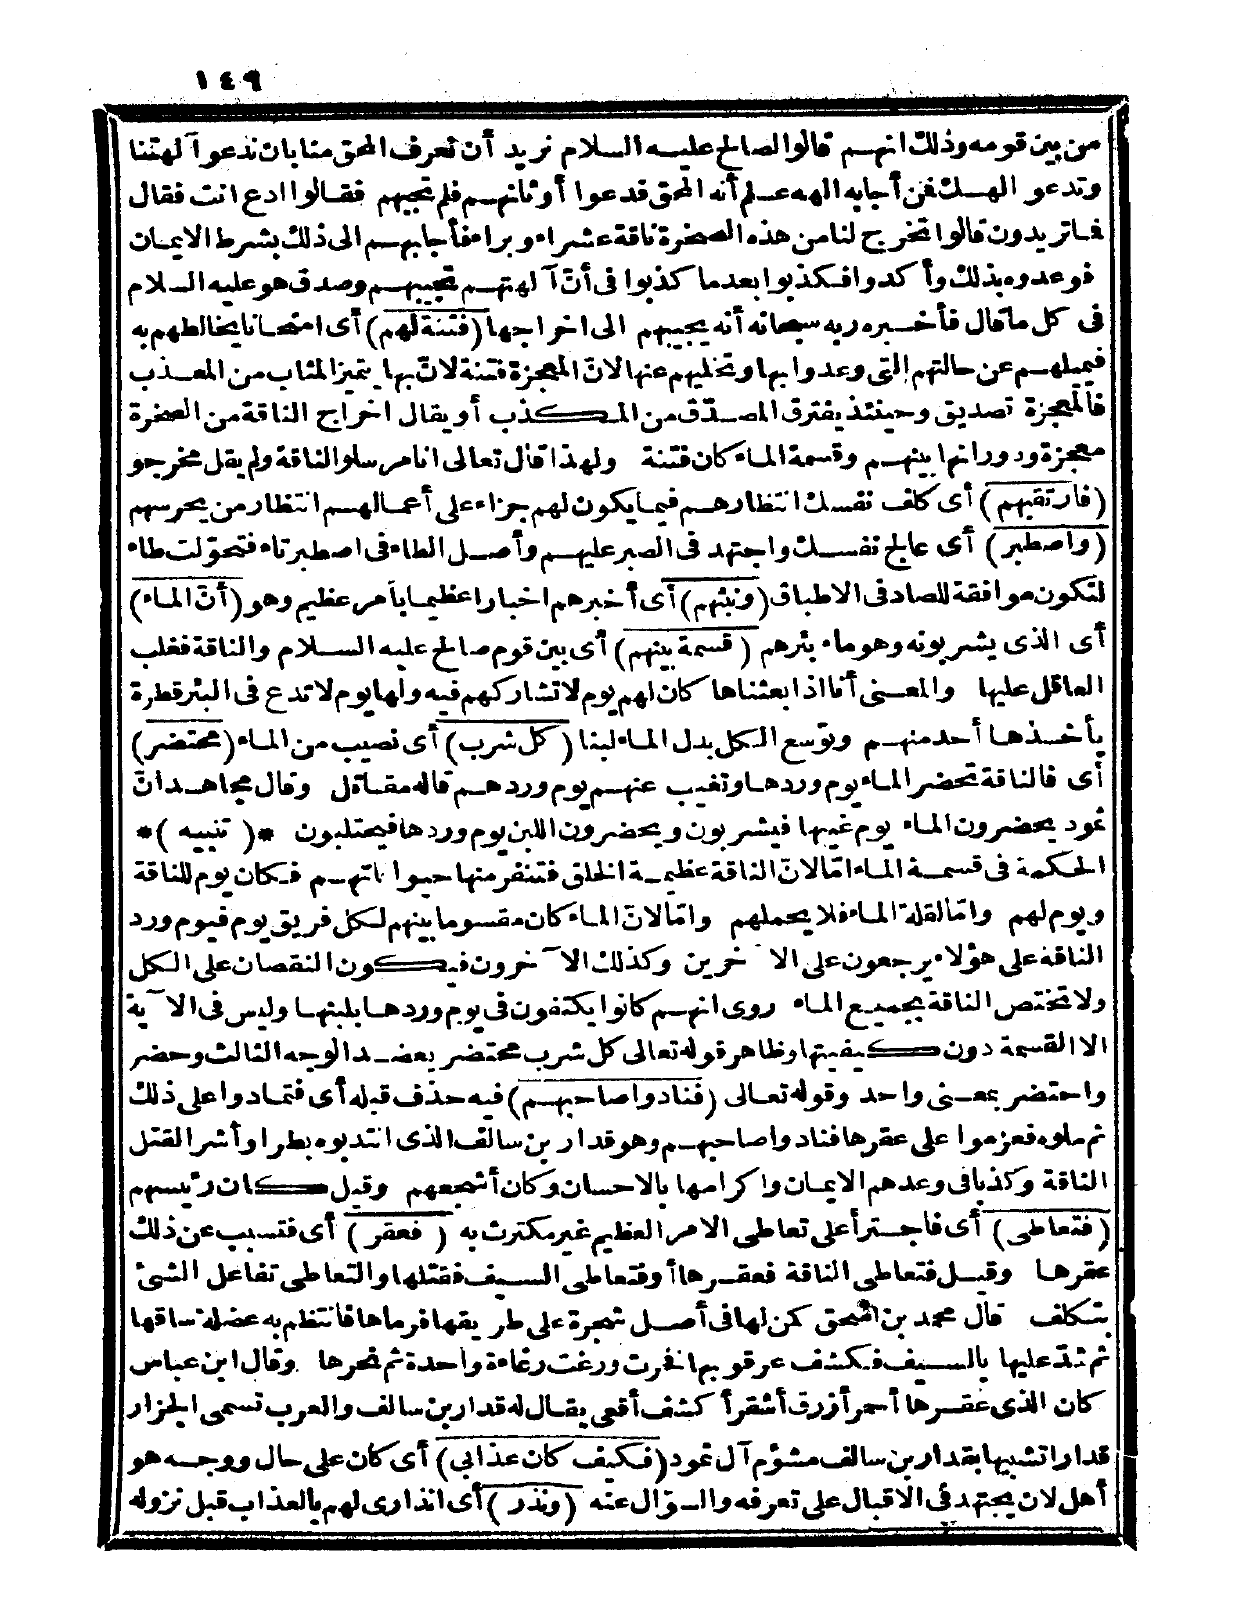 ١٤٩
من بين قومه وذلك انهم قالوا لصالح عليه السلام نريد أن تعرف المحق منا بان ندعو آلهتنا
وتدعو الهك فن أجابه الهه علم أنه المحق فدعوا أوثانهم فلم تجبهم فقالوا ادع انت فقال
فاتريدون قالوا تخرج لنا من هذه الصخرة ناقة عشراء وبراء فأجابهم الى ذلك بشرط الايمان
فوعدوه بذلك وأكدوا فكذبوا بعدما كذبوا فى أنّ آلهتهم تجيبهم وصدق هو عليه السلام
فى كل ما قال فأخبره ربه سبحانه أنه يجيبهم الى اخراجها (فتنة لهم) أى امتحانا يخالطهم به
فيميلهم عن حالتهم التى وعدوا بها وتخليهم عنها لانّ المعجزة فتنة لانّ بها يتميز المثاب من المعذب
فالمعجزة تصديق وحينئذ يفترق المصدّق من المكذب أو يقال اخراج الناقة من الصخرة
معجزة ودورانها بينهم وقسمة الماء كان فتنة ولهذا قال تعالى انا مرسلو الناقة ولم يقل مخرجو
(فارتقبهم) أى كلف نفسك انتظارهم فيما يكون لهم جزاء على أعمالهم انتظار من يحرسهم
(واصطبر) أى عالج نفسك واجتهد فى الصبر عليهم وأصل الطاء فى اصطبر تاء فتحوّلت طاء
لتكون موافقة للصاد فى الاطباق (ونبئهم) أى أخبرهم اخبارا عظيما بأمر عظيم وهو (أنّ الماء)
أى الذى يشربونه وهو ماء بئرهم (قسمة بينهم) أى بين قوم صالح عليه السلام والناقة فغلب
العاقل عليها والمعنى أنا اذا بعثناها كان لهم يوم لا تشاركهم فيه ولها يوم لا تدع فى البئر قطرة
يأخذها أحد منهم وتوسع الكل بدل الماء لبنا (كل شرب) أى نصيب من الماء (محتضر)
أى فالناقة تحضر الماء يوم وردها وتغيب عنهم يوم وردهم قاله مقاتل وقال مجاهد انّ
ثمود يحضرون الماء يوم غيبها فيشربون ويحضرون اللبن يوم وردها فيحتلبون *(تنبيه)*
الحكمة فى قسمة الماء امّا لانّ الناقة عظيمة الخلق فتنفر منها حيواناتهم فكان يوم للناقة
ويوم لهم وامّا لقلة الماء فلا يحملهم وامّا لانّ الماء كان مقسوما بينهم لكل فريق يوم فيوم ورد
الناقة على هؤلاء يرجعون على الآخرين وكذلك الآخرون فيكون النقصان على الكل
ولا تختص الناقة بجميع الماء روى انهم كانوا يكتفون فى يوم وردها بلبنها وليس فى الآية
الا القسمة دون كيفيتها وظاهر قوله تعالى كل شرب محتضر يعضد الوجه الثالث وحضر
واحتضر بمعنى واحد وقوله تعالى (فنادوا صاحبهم) فيه حذف قبله أى فتمادوا على ذلك
ثم ملوه فعزموا على عقرها فنادوا صاحبهم وهو قدار بن سالف الذى انتدبوه بطرا وأشرا لقتل
الناقة وكذبا فى وعدهم الايمان واكرامها بالاحسان وكان أشجعهم وقيل كان رئيسهم
(فتعاطى) أى فاجترأ على تعاطى الامر العظيم غير مكترث به (فعقر) أى فتسبب عن ذلك
عقرها وقيل فتعاطى الناقة فعقرها أو فتعاطى السيف فقتلها والتعاطى تفاعل الشئ
بتكلف قال محمد بن اسحق كمن لها فى أصل شجرة على طريقها فرماها فانتظم به عضلة ساقها
ثم شدّ عليها بالسيف فكشف عرقوبها فخرت ورغت رغاءة واحدة ثم نحرها وقال ابن عباس
كان الذى عقرها أحمر أزرق أشقر أكشف أقعى يقال له قدار بن سالف والعرب تسمى الجزار
قدارا تشبيها بقدار بن سالف مشؤم آل ثمود (فكيف كان عذابى) أى كان على حال ووجه هو
أهل لان يجتهد فى الاقبال على تعرفه والسؤال عنه (ونذر) أى انذارى لهم بالعذاب قبل نزوله